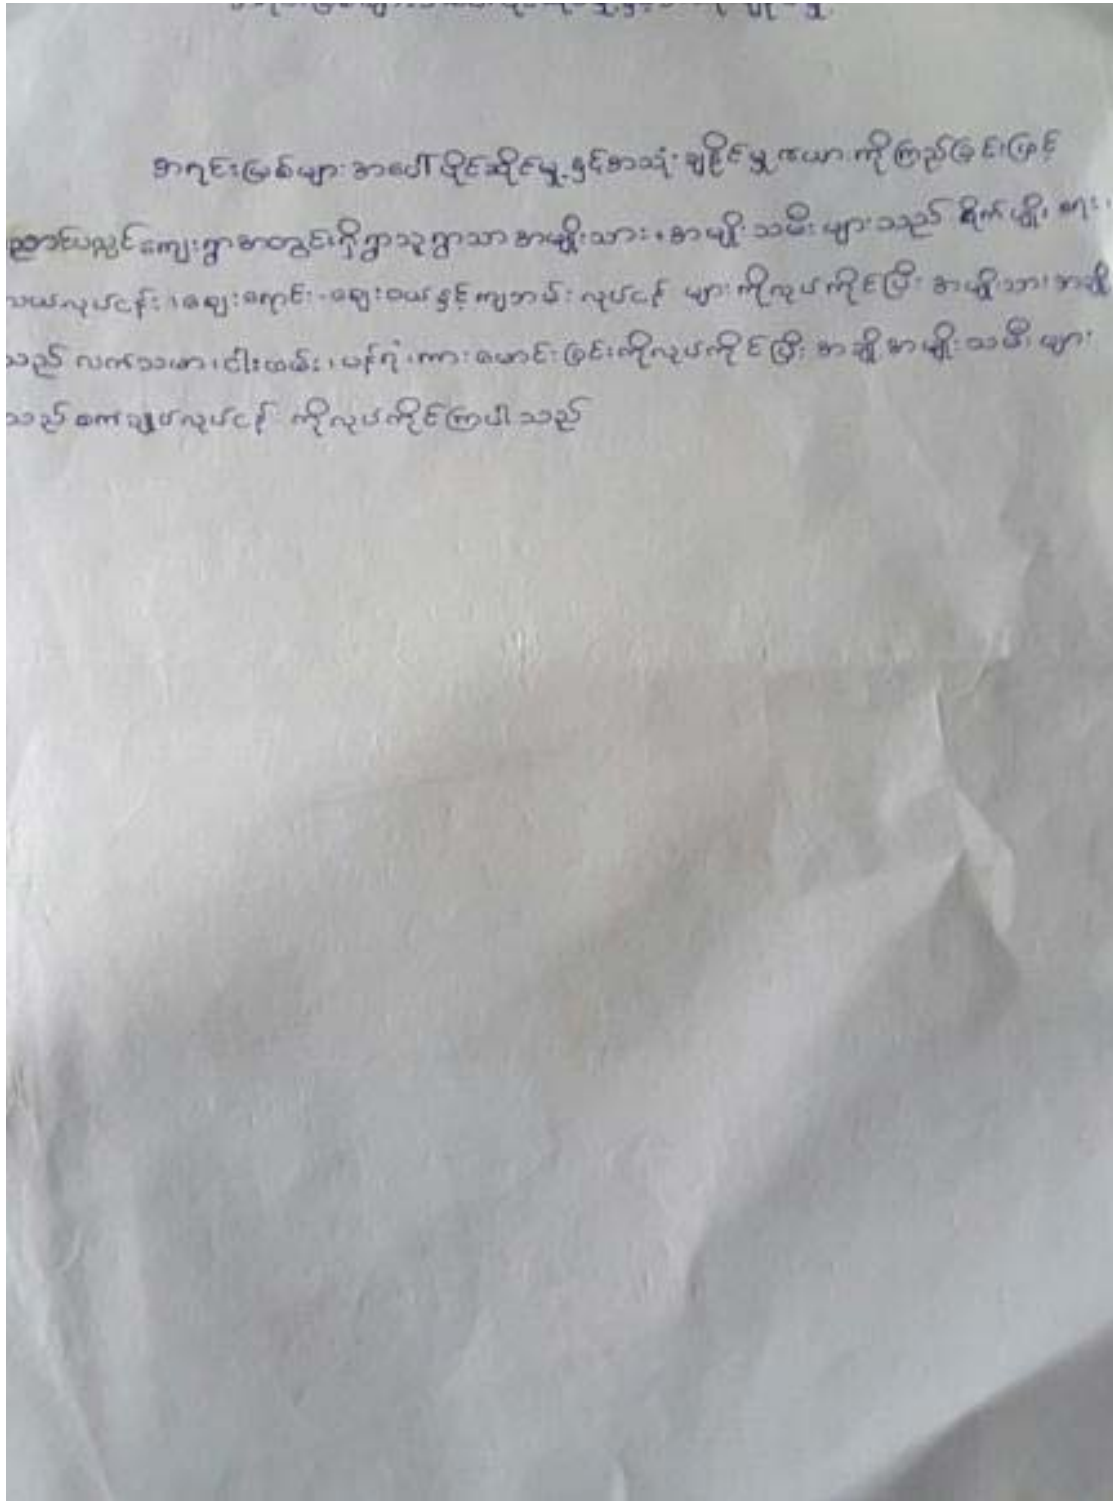 အရင်းအမြစ်များအပေါ်ပိုင်ဆိုင်မှု့နှင့်အသုံးချနိုင်မှု့ဇယားကိုကြည့်ခြင်းဖြင့်
ကျေးရွာအတွင်းရှိရွာသူရွာသားအမျိုးသား၊ အမျိုးသမီးများသည် စိုက်ပျိုးရေး၊
လုပ်ငန်း၊ဈေးရောင်း၊ဈေးဝယ်နှင့်ကျဘမ်းလုပ်ငန်း များကိုလုပ်ကိုင်ပြီး အမျိုးသားအချို့
သည် လက်သမာ၊ငါးဖမ်း၊ပန်းရံ၊ကားမောင်းခြင်းကိုလုပ်ကိုင်ပြီး အချို့အမျိုးသမီးများ
သည်စက်ချုပ်လုပ်ငန်း ကိုလုပ်ကိုင်ကြပါသည်